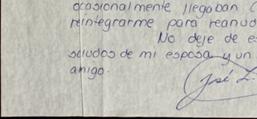 ocasionalmente, llegaban
reintegrarme para reanud
No deje de e
saludos de mi esposa y un
amigo.
José L.